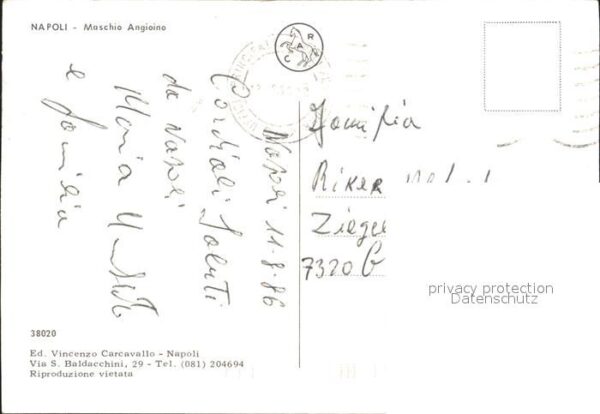 NAPOLI - Maschio Angioino
CARA
Napoli 11-8-86
Cordiali Saluti
da Napoli
Maria
e Familia
Familia
Riker
Ziegel
7320 G
privacy protection
Datenschutz
38020
Ed. Vincenzo Carcavallo - Napoli
Via S. Baldacchini, 29 - Tel. (081) 204694
Riproduzione vietata